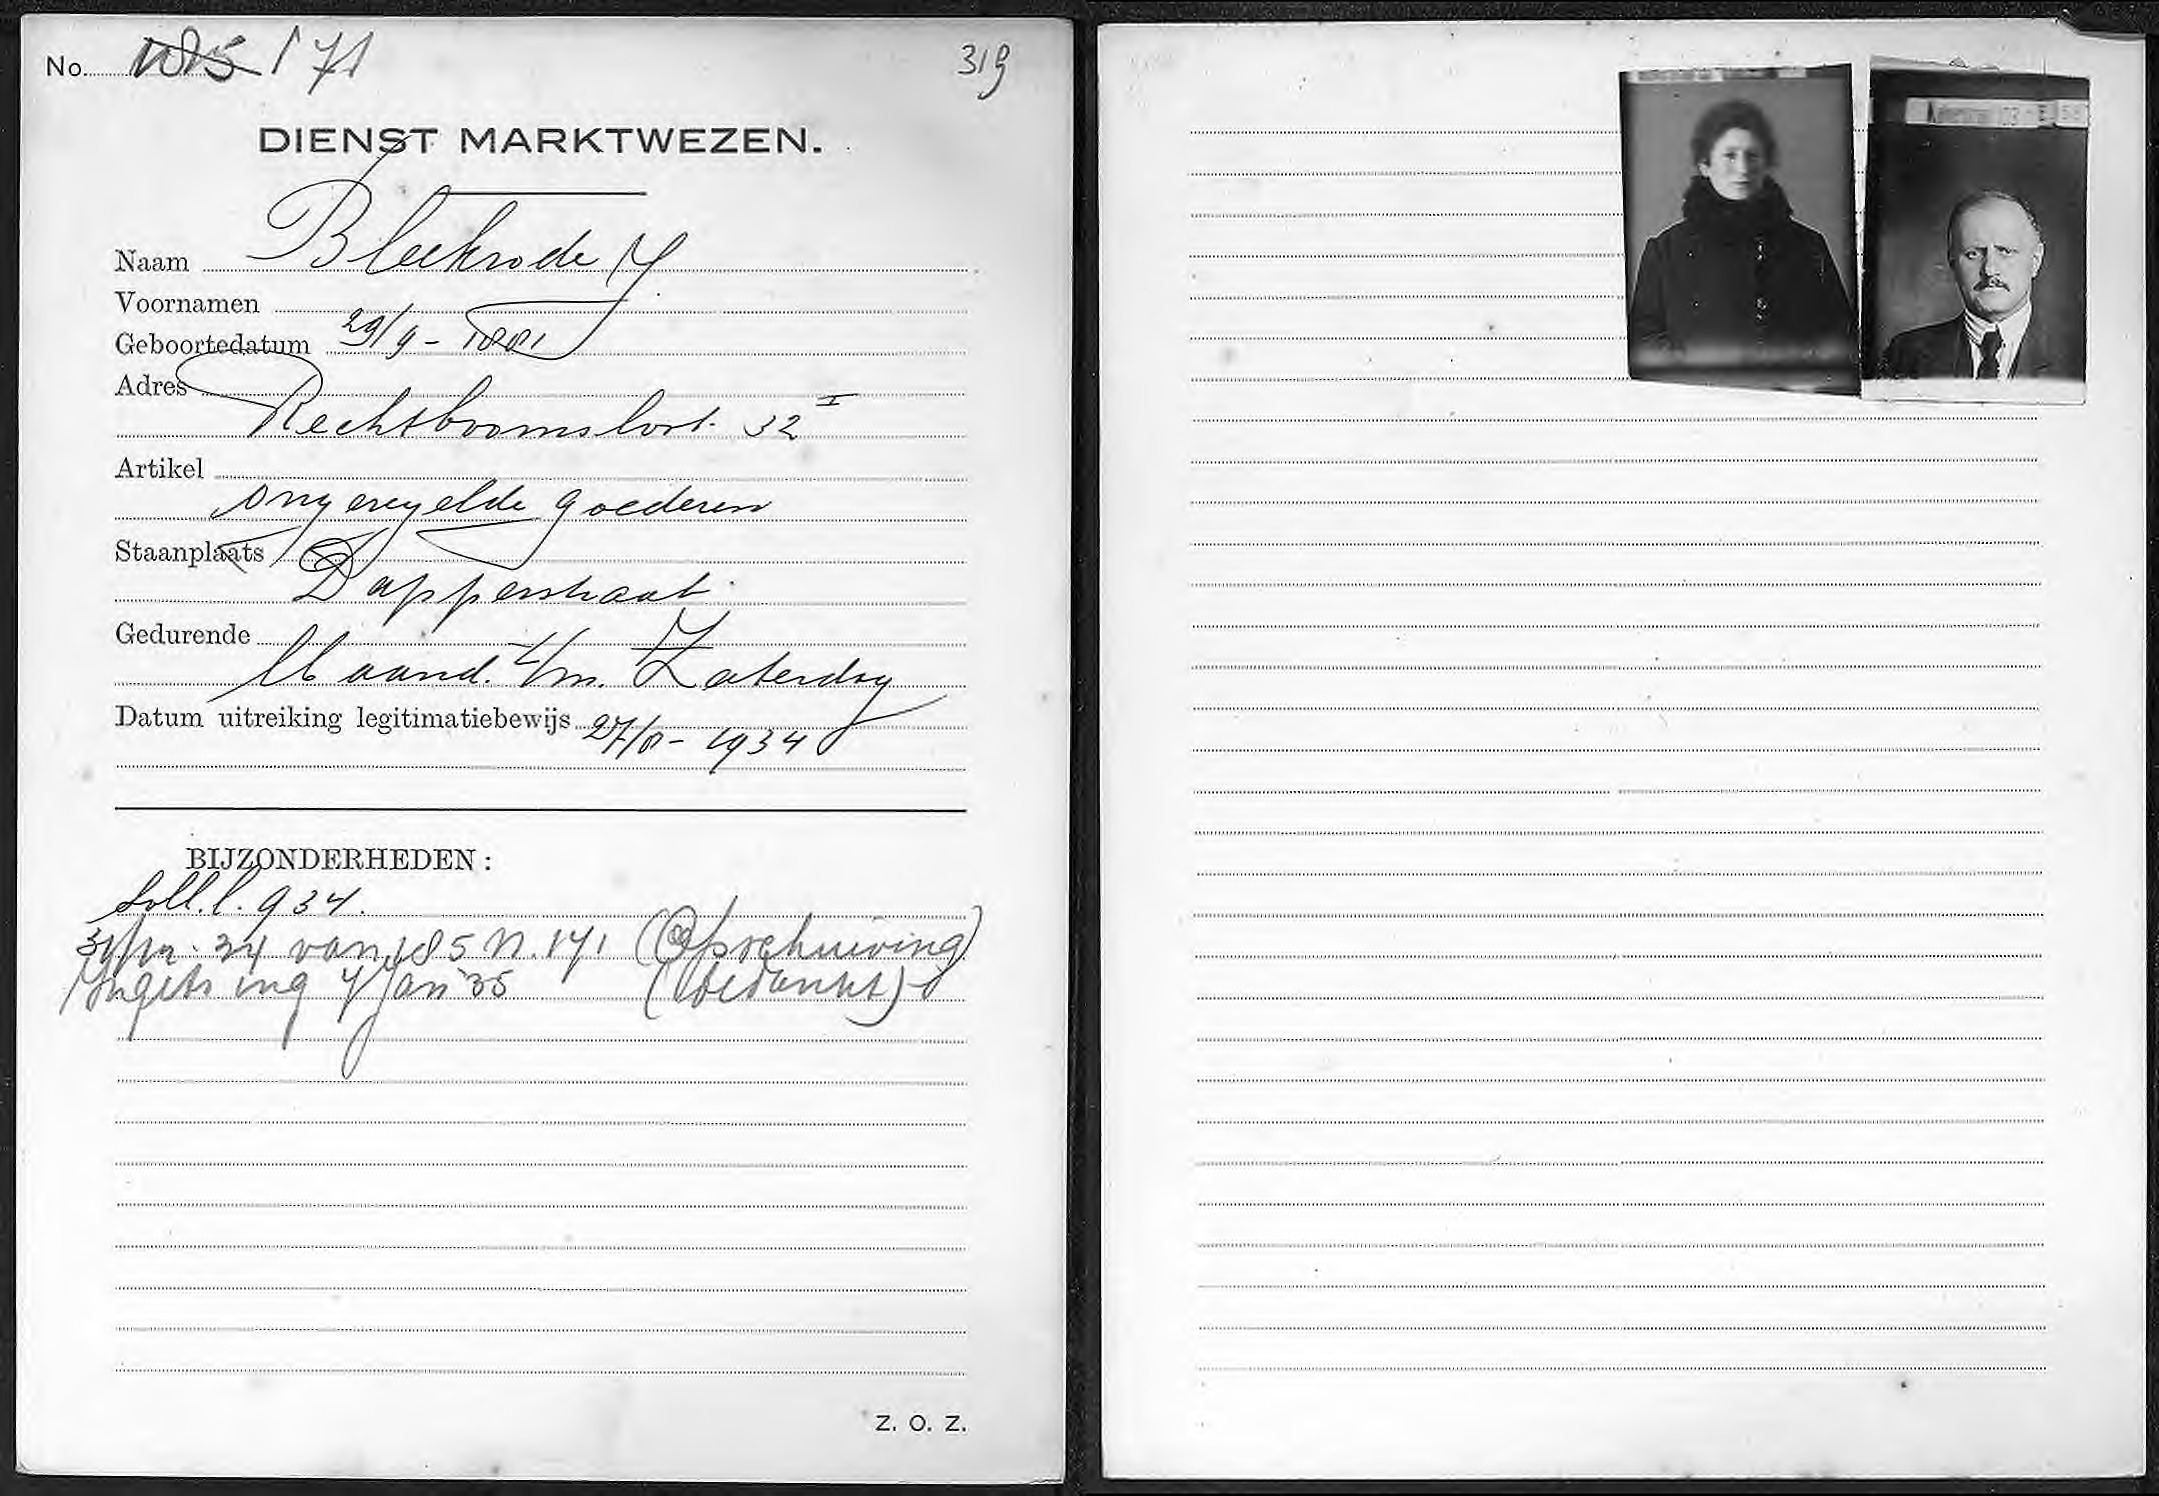 No. 185 171
319
DIENST MARKTWEZEN.
Naam Bleekrode J
Voornamen
Geboortedatum 29/9 - 1881
Adres
Rechtboomsloot. 32 I
Artikel
ongeregelde goederen
Staanplaats
Dapperstraat
Gedurende
Maand. t/m. Zaterdag
Datum uitreiking legitimatiebewijs 27/8 - 1934
BIJZONDERHEDEN:
Soll.l. 934.
34 van 185 n. 171 (Opschuiving)
Ingetr ing 7 Jan '35 (bedankt)
Z. O. Z.